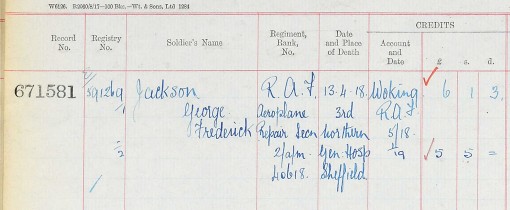 W6126. R2000/8/17—500 Bks.—Wt. & Sons, Ltd 1284
CREDITS
Record No. Registry No. Soldier's Name Regiment, Rank, No. Date and Place of Death Account and Date £ s. d.
671581 Jackson R.A.F 13.4.18. Woking 6 1 3.
/1 George Aeroplane 3rd R.A.F
Frederick Repair Secn Northern 5/18.
/2 2/a/m. Gen. Hosp 1/19 5 5 =
40618. Sheffield